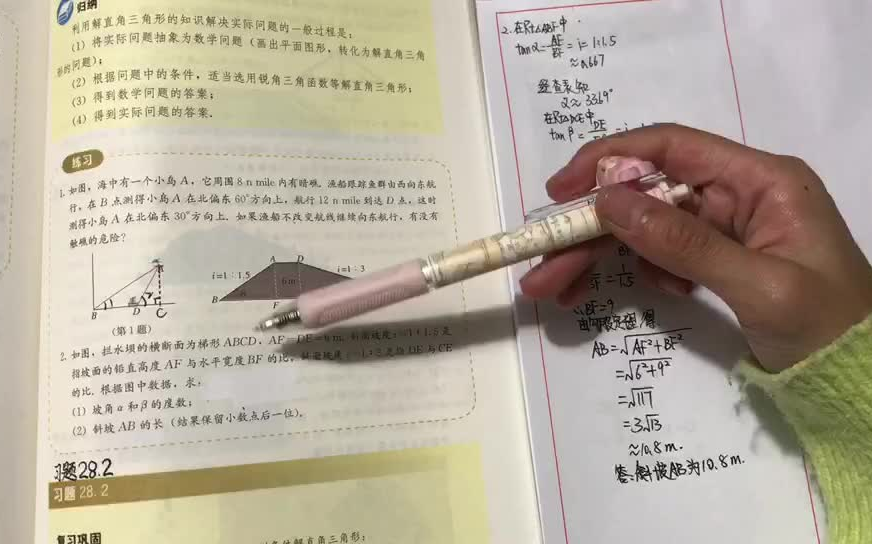 归纳
利用解直角三角形的知识解决实际问题的一般过程是:
(1) 将实际问题抽象为数学问题 (画出平面图形, 转化为解直角三角
形的问题);
(2) 根据问题中的条件, 适当选用锐角三角函数等解直角三角形;
(3) 得到数学问题的答案;
(4) 得到实际问题的答案.
练习
1. 如图, 海中有一个小岛 A, 它周围 8 n mile 内有暗礁. 渔船跟踪鱼群由西向东航
行, 在 B 点测得小岛 A 在北偏东 60°方向上, 航行 12 n mile 到达 D 点, 这时
测得小岛 A 在北偏东 30°方向上. 如果渔船不改变航线继续向东航行, 有没有
触礁的危险?
B D C
(第 1 题)
A D
i=1:1.5 6 m i=1:3
B F
2. 如图, 拦水坝的横断面为梯形 ABCD, AF=DE=6 m. 斜面坡度 i=1:1.5 是
指坡面的铅直高度 AF 与水平宽度 BF 的比, 斜面坡度 i=1:3 是指 DE 与 CE
的比. 根据图中数据, 求:
(1) 坡角 α 和 β 的度数;
(2) 斜坡 AB 的长 (结果保留小数点后一位).
习题28.2
习题 28.2
复习巩固
解直角三角形:
2. 在Rt△ABF中
tanα=AF/BF=i=1:1.5
≈0.667
经查表知
α≈33.69°
在Rt△DCE中
tanβ=DE
BF
=1/1.5
∴BF=9
由勾股定理得
AB=√AF²+BF²
=√6²+9²
=√117
=3√13
≈10.8m.
答:斜坡AB为10.8m.